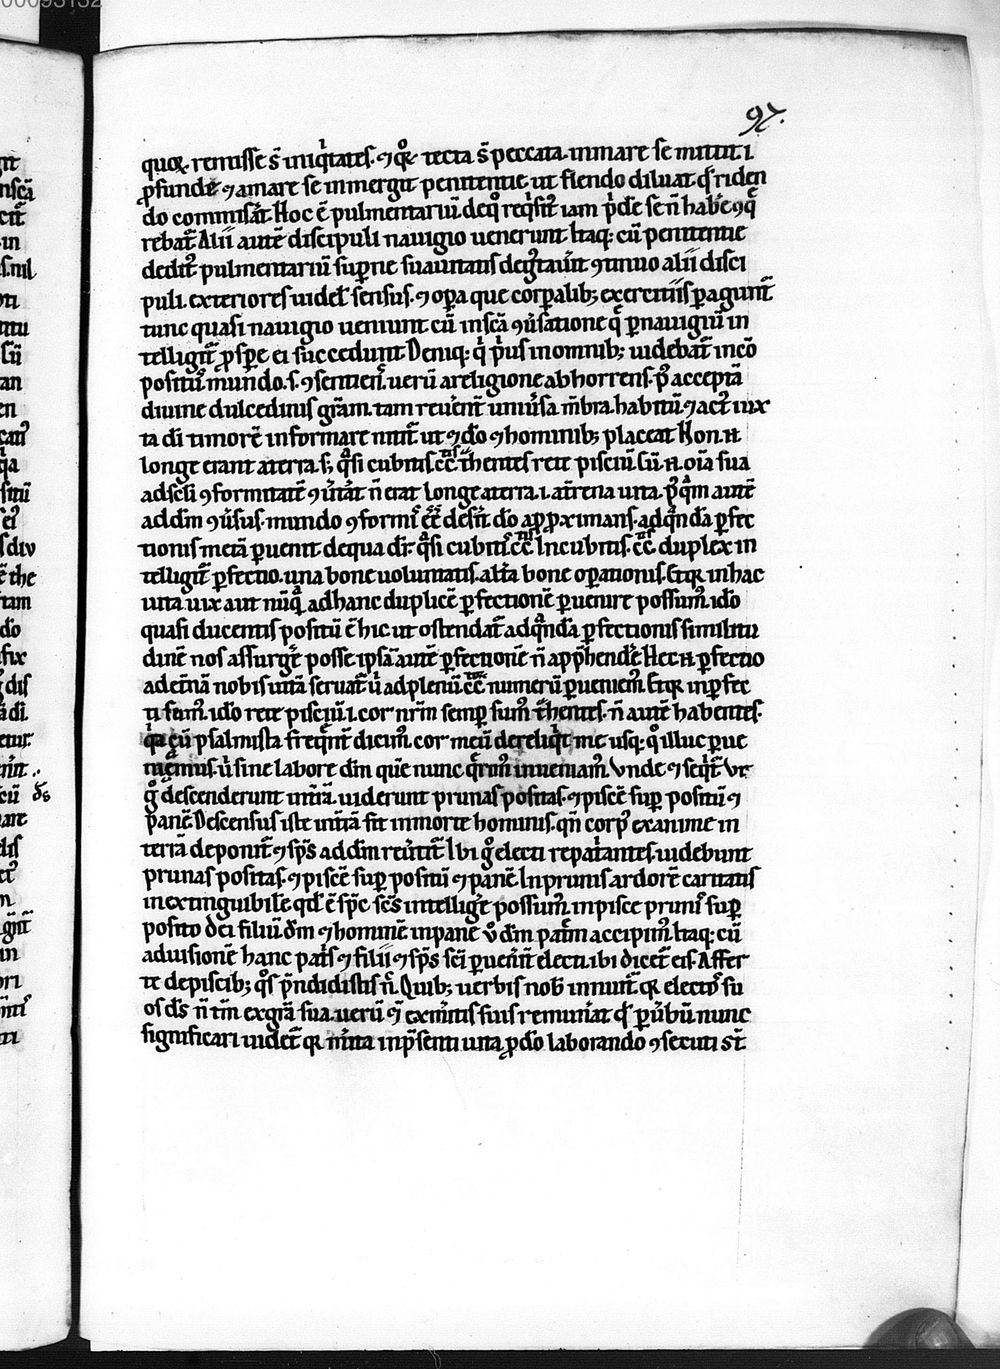 00093132
97.
quoꝝ remisse s̄ iniq̇tates. ⁊ qͦꝝ tecta s̄ peccata. in mare se mittit .i.
ꝓfunde ⁊ amare se inmergit penitentie. ut flendo diluat qđ riden
do commisāt. Hoc ē pulmentariū. de qͦ reqͥsiť iam pͥdē se ñ habē ꝯq̄
rebat̄. Alii autē discipuli nauigio uenerunt. Itaq; cū penitentie
dedit᷒ pulmentariū supͥne suauitatis degͧtauīt ꝯtinuo alii disci
puli. exteriores uidel̄ sensus. ⁊ oꝑa que corꝑalib; exercitiis ꝑagunt̄
tunc quasi nauigio ueniunt cū in sc̄a ꝯuͥsatione qͣ ꝑ nauigiū in
telligit̄ ꝓspe ei succedunt. Deniq; qͥ pͥus in omnib; uidebat̄ incō
posit᷒. mundo .s. ꝯsentiens. uerū a religione abhorrens. pͦ acceptā
diuine dulcedinis gr̄am. tam reuēnt uniuͥsa m̄bra. habitū. ⁊ act᷒ iux
ta dī timorē informare nitit̄ ut ⁊ dō ⁊ hominib; placeat. Non .n.
longe erant a terra. s; qͣsi cubitis .cc. tͣhentes rete pisciū. Cū .n. oīa sua
ad sc̄li ꝯformitatē ꝯuͥtāt ñ erat longe a terra .i. a tͥrena uita. pͦqͣm autē
ad dm̄ ꝯuͥsus. mundo ꝯformͥ eē desīt. dō apꝓximans. ad qͣndā ꝑfec
tionis metā ꝑuenit. de qua dr̄. qͣsi cubitͥ .cc. In cubitis .cc. duplex in
telligit̄ ꝑfectio. una bone uoluntatis. alťa bone oꝑationis. Et qꝛ in hac
uita uix aut nūqͣ ad hanc duplicē ꝑfectionē ꝑuenire possum᷒. idō
quasi ducentis positū ē hic ut ostendat̄ ad qͣndā ꝑfectionis similitu
dinē nos assurgͤe posse. ipsā autē ꝑfectionē ñ app̄hendͤe. Hec .n. ꝑfectio
ad et̄nā nobis uitā seruat̄. uͥ ad plenū .cc. numerū ꝑueniem᷒. Et qꝛ inꝑfec
ti sum᷒. idō rete pisciū .i. cor nr̄m semꝑ sum᷒ tͣhentes. ñ autē habentes.
qͥa cū psalmista freqͣnt̄ dicim᷒. cor meū dereliqͥt me. usq; qͦ illuc ꝑue
niem᷒. uͥ sine labore dm̄ quē nunc qͣrim᷒ inueniam᷒. Vnde ⁊ seqͥt̄. Vt
gͦ descenderunt in tͥrā. uiderunt prunas positas. ⁊ piscē suꝑ positū ⁊
panē. Descensus iste in tͥrā fit in morte hominis. qn̄ corp᷒ exanime in
terrā deponit̄ ⁊ sps̄ ad dm̄ reuͥtit̄. Ibi gͦ electi repatͥantes. uidebunt
prunas positas. ⁊ piscē suꝑ positū ⁊ panē. In prunis ardorē caritatis
inextinguibilē qđ ē sps̄ sc̄s intelligͤe possum᷒. in pisce prunͥ suꝑ
posito dei filiū dm̄ ⁊ hominē. in pane uͦ dm̄ patrē accipim᷒. Itaq; cū
ad uisionē hanc patͥs ⁊ filii ⁊ sps̄ sc̄i ꝑuenīt electi. ibi dicet̄ eis. Affer
te de piscib; qͦs p̄ndidistis ñc. Quib; uerbis nob̄ innuit̄ qꝛ electͦs su
os ds̄ ñ tm̄ ex grā sua. uerū ⁊ ex mͥitis suis remunͥat. qđ ꝑ uͥbū nunc
significari uidet̄ qꝛ mͥita in p̄senti uita ꝓ dō laborando ꝯsecuti st̄